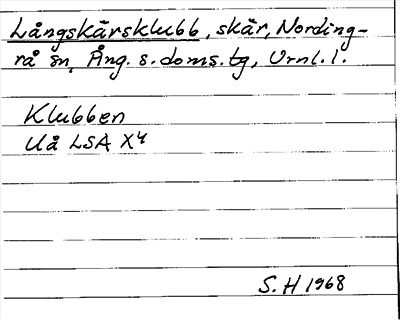 Långskärsklubb, skär, Nording-
rå sn, Ång. s. doms. tg, Örnl. l.
Klubben
Uå LSA X4
S. H 1968